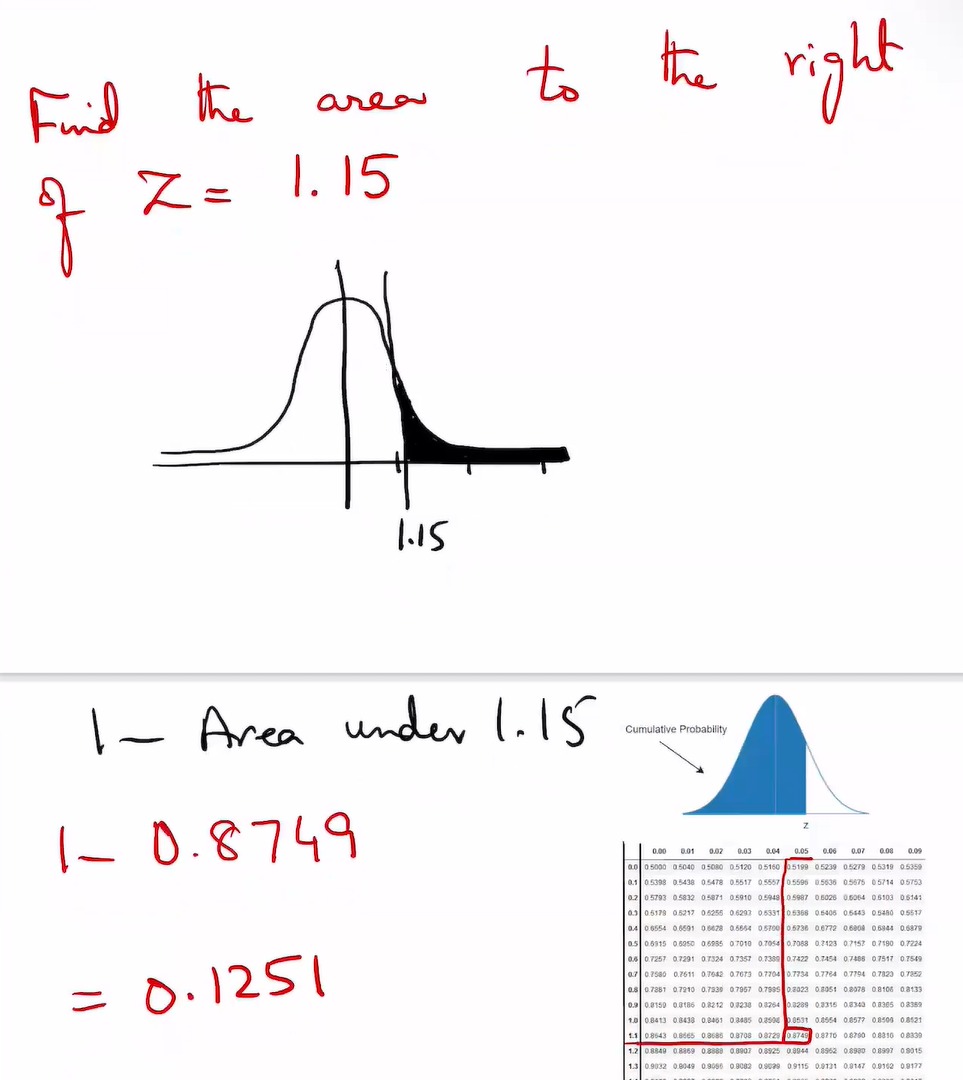 Find the area to the right
of Z = 1.15
1.15
1 - Area under 1.15
1 - 0.8749
= 0.1251
Cumulative Probability
z
0.00 0.01 0.02 0.03 0.04 0.05 0.06 0.07 0.08 0.09
0.0 0.5000 0.5040 0.5080 0.5120 0.5160 0.5199 0.5239 0.5279 0.5319 0.5359
0.1 0.5398 0.5438 0.5478 0.5517 0.5557 0.5596 0.5636 0.5675 0.5714 0.5753
0.2 0.5793 0.5832 0.5871 0.5910 0.5948 0.5987 0.6026 0.6064 0.6103 0.6141
0.3 0.6179 0.6217 0.6255 0.6293 0.6331 0.6368 0.6406 0.6443 0.6480 0.6517
0.4 0.6554 0.6591 0.6628 0.6664 0.6700 0.6736 0.6772 0.6808 0.6844 0.6879
0.5 0.6915 0.6950 0.6985 0.7019 0.7054 0.7088 0.7123 0.7157 0.7190 0.7224
0.6 0.7257 0.7291 0.7324 0.7357 0.7389 0.7422 0.7454 0.7486 0.7517 0.7549
0.7 0.7580 0.7611 0.7642 0.7673 0.7704 0.7734 0.7764 0.7794 0.7823 0.7852
0.8 0.7881 0.7910 0.7939 0.7967 0.7995 0.8023 0.8051 0.8078 0.8106 0.8133
0.9 0.8159 0.8186 0.8212 0.8238 0.8264 0.8289 0.8315 0.8340 0.8365 0.8389
1.0 0.8413 0.8438 0.8461 0.8485 0.8508 0.8531 0.8554 0.8577 0.8599 0.8621
1.1 0.8643 0.8665 0.8686 0.8708 0.8729 0.8749 0.8770 0.8790 0.8810 0.8830
1.2 0.8849 0.8869 0.8888 0.8907 0.8925 0.8944 0.8962 0.8980 0.8997 0.9015
1.3 0.9032 0.9049 0.9066 0.9082 0.9099 0.9115 0.9131 0.9147 0.9162 0.9177